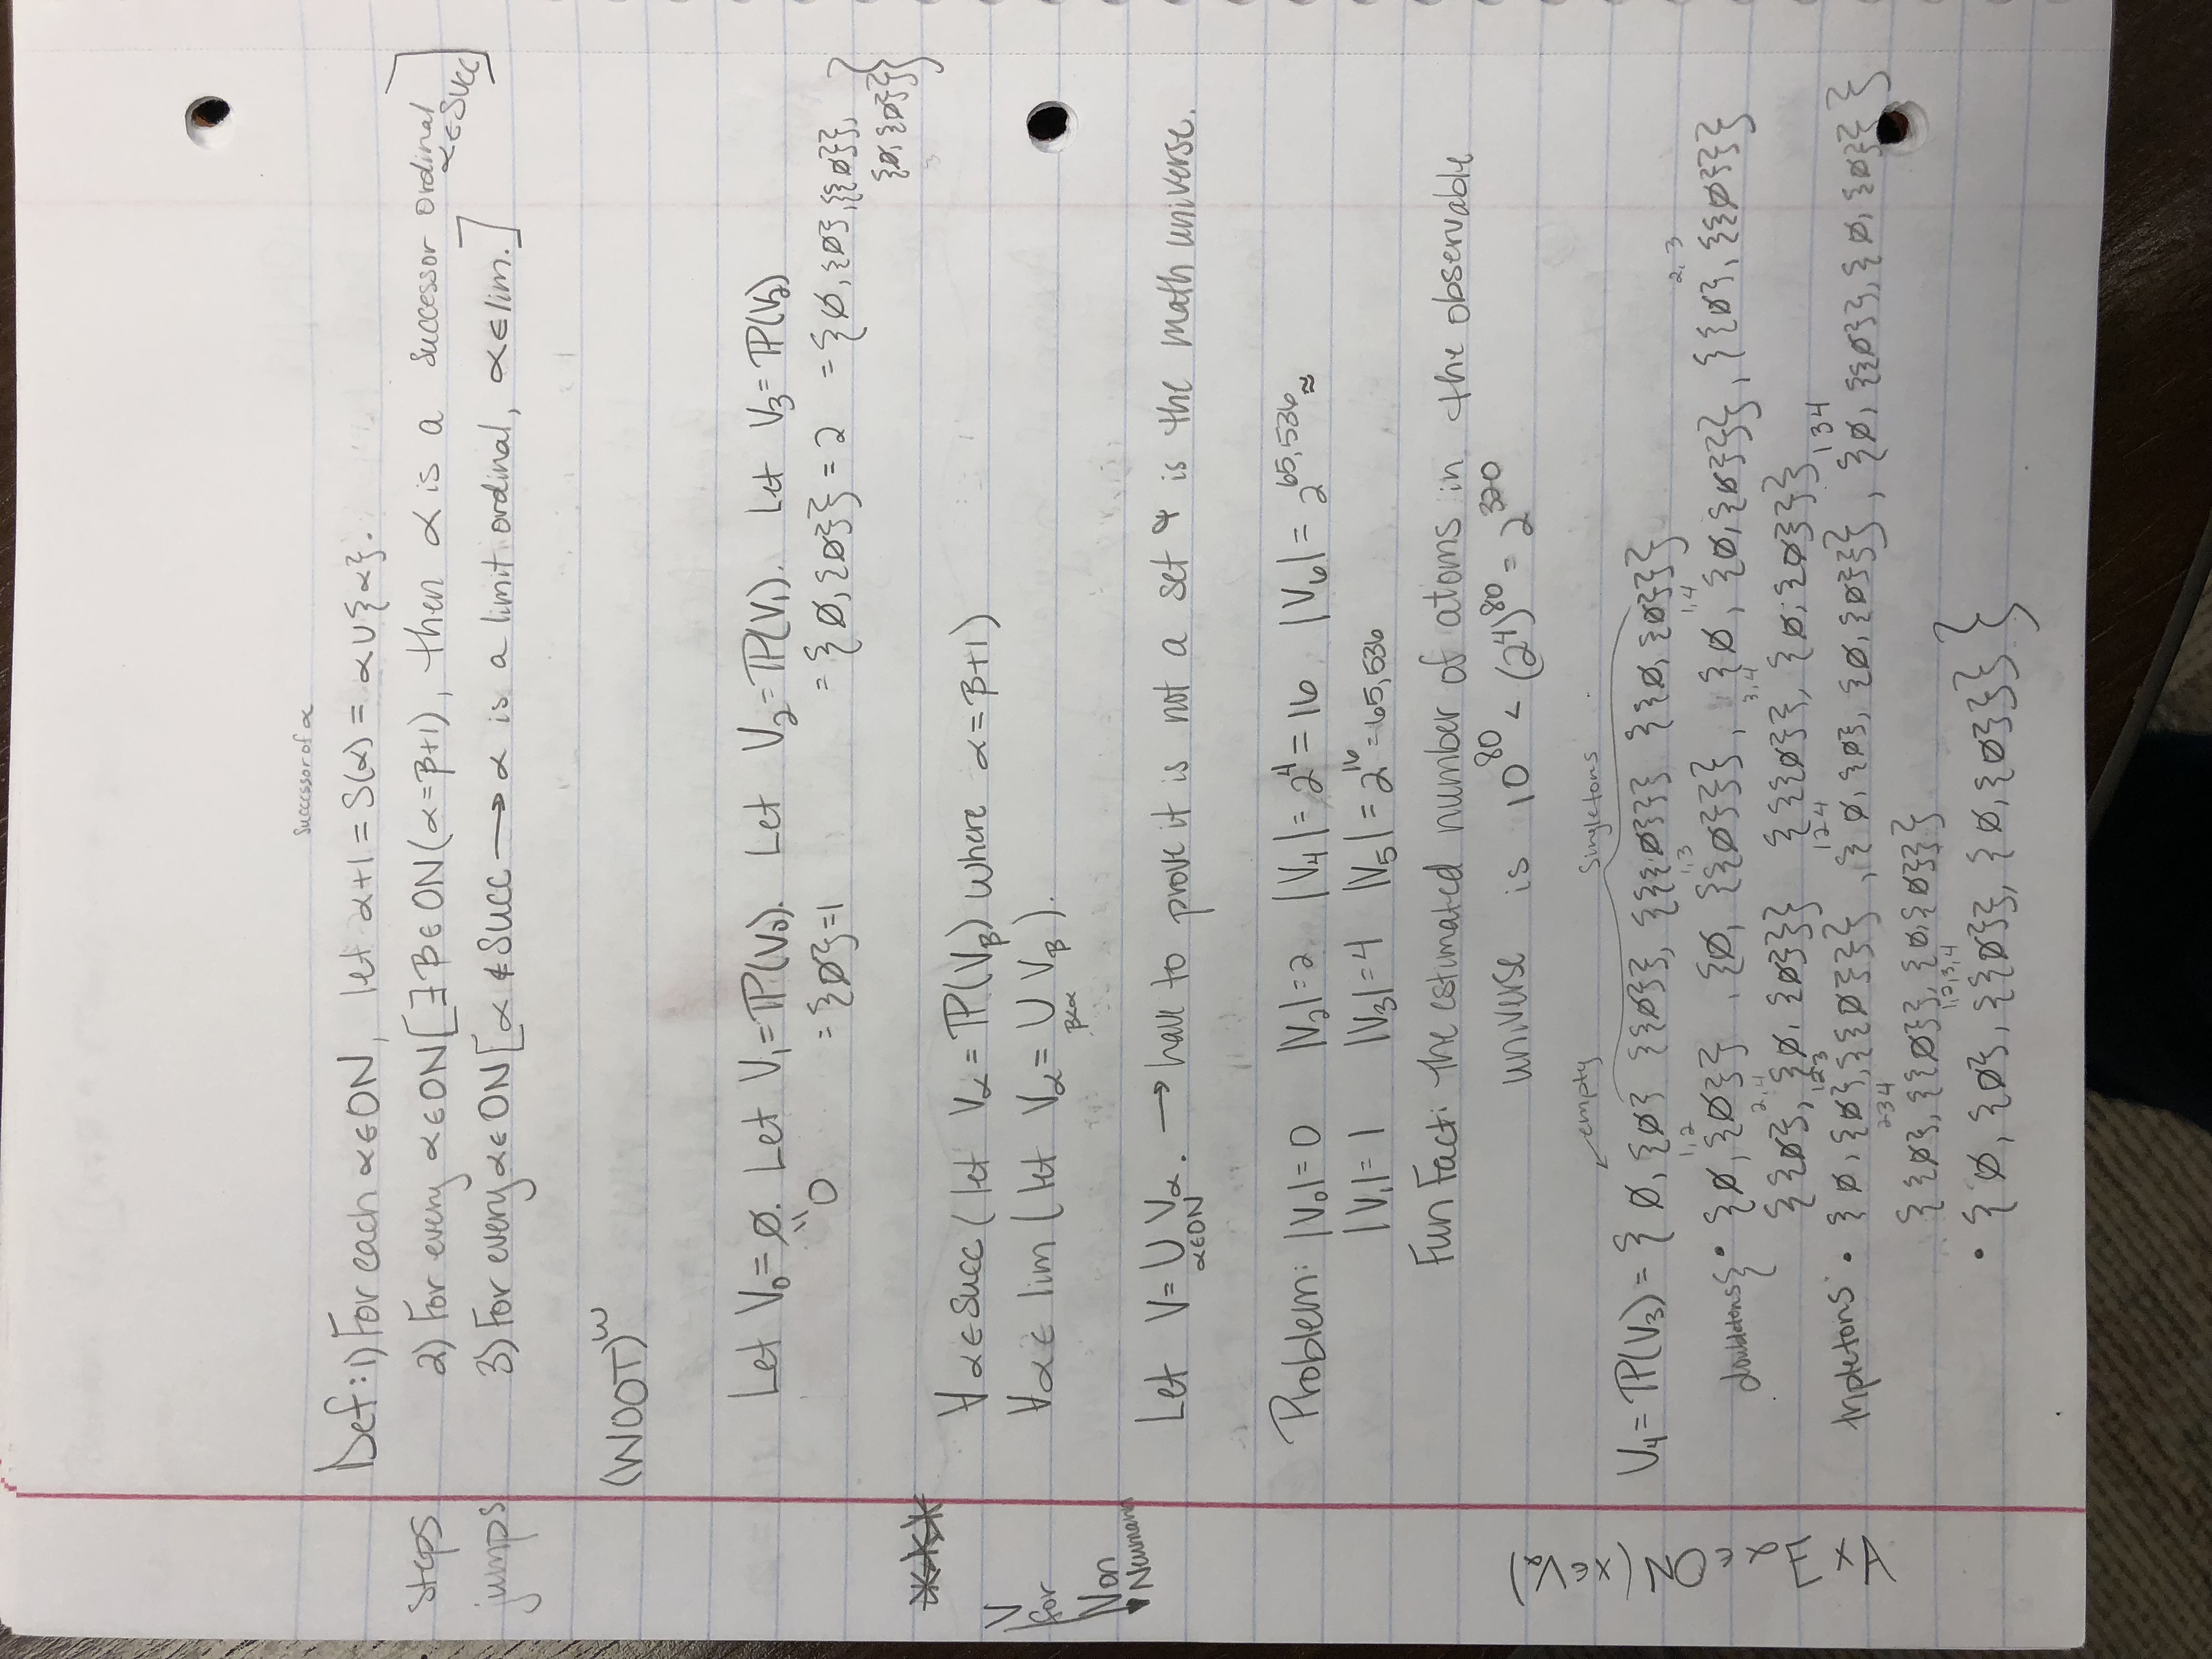 Successor of α
Def: 1) For each α∈ON, let α+1 = S(α) = α∪{α}.
steps 2) For every α∈ON[∃β∈ON(α=β+1), then α is a Successor Ordinal
α∈Succ]
jumps 3) For every α∈ON[α∉Succ → α is a limit ordinal, α∈lim.]
(WOOT)^ω
Let V₀=∅. Let V₁=ℙ(V₀). Let V₂=ℙ(V₁). Let V₃=ℙ(V₂)
" 0 ={∅}=1 ={∅,{∅}}=2 ={∅,{∅},{{∅}},
{∅,{∅}}}
***
∀α∈Succ (let V_α = ℙ(V_β) where α=β+1)
∀α∈ lim (let V_α = ∪ V_β).
β<α
V
for
Von
Neumann
Let V= ∪ V_α. → have to prove it is not a set & is the math universe.
α∈ON
Problem: |V₀|=0 |V₂|=2 |V₄|=2⁴=16 |V₆|=2^65,536 ≈
|V₁|=1 |V₃|=4 |V₅|=2¹⁶=65,536
Fun Fact: The estimated number of atoms in the observable
universe is 10⁸⁰ < (2⁴)⁸⁰ = 2³²⁰
∀x∃α∈ON(x∈V_α)
empty Singletons
V₄=ℙ(V₃)={ ∅, {∅} {{∅}}, {{{∅}}} {{∅,{∅}}}
1,2 1,3 1,4 2,3
doubletons{ • {∅,{∅}} , {∅, {{∅}}}, {∅, {∅,{∅}}}, {{∅},{{∅}}}
2,4 3,4
{{∅}, {∅, {∅}}} {{{∅}}, {∅, {∅}}}
123 124 134
tripletons • {∅,{∅},{{∅}}} , {∅, {∅}, {∅,{∅}}} , {∅, {{∅}}, {∅, {∅}} }
234
{{∅}, {{∅}}, {∅,{∅}}}
1,2,3,4
• {∅, {∅}, {{∅}}, {∅,{∅}}} }